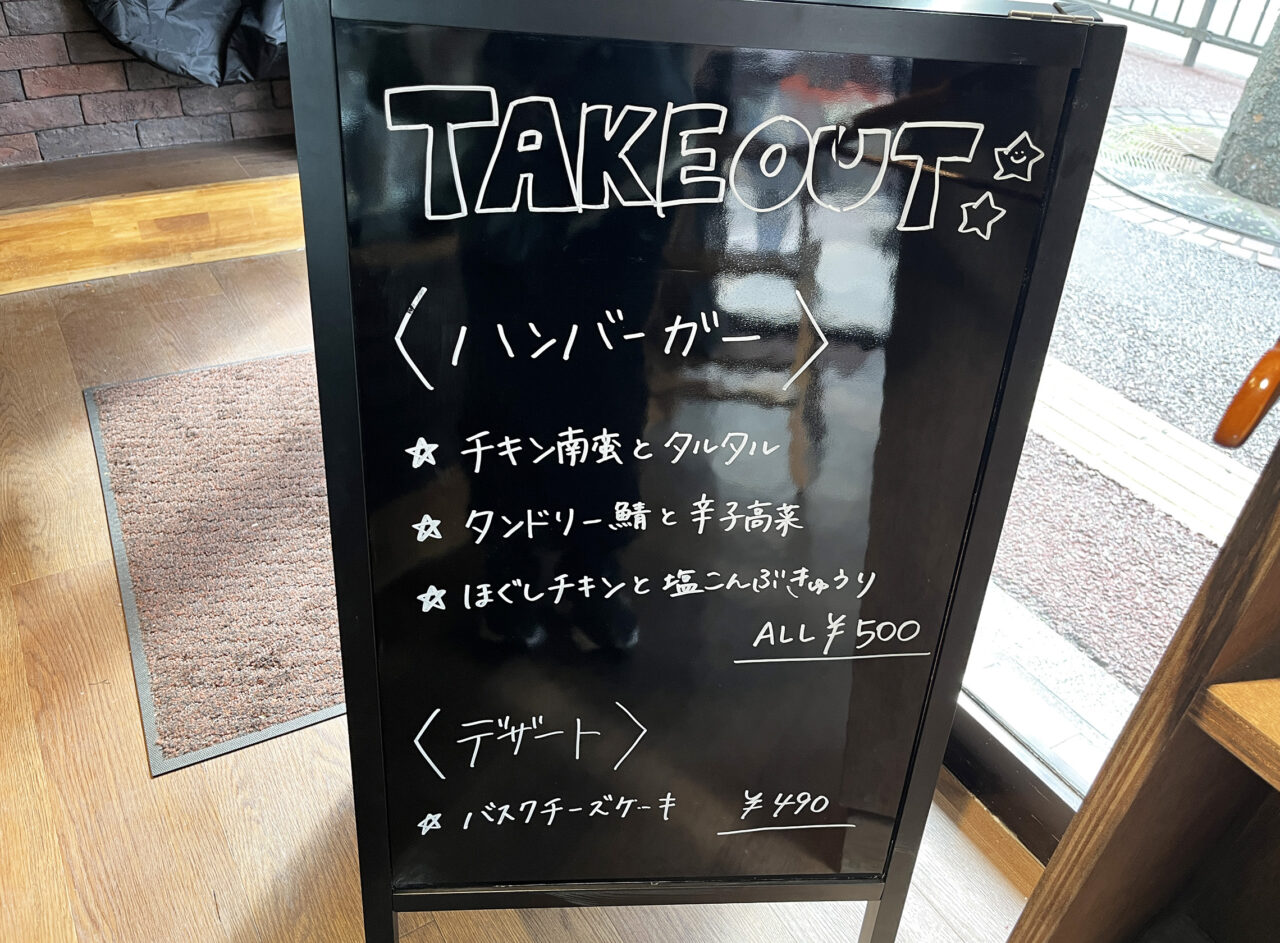 TAKEOUT
〈ハンバーガー〉
☆ チキン南蛮とタルタル
☆ タンドリー鯖と辛子高菜
☆ ほぐしチキンと塩こんぶきゅうり
ALL ¥500
〈デザート〉
☆ バスクチーズケーキ ¥490